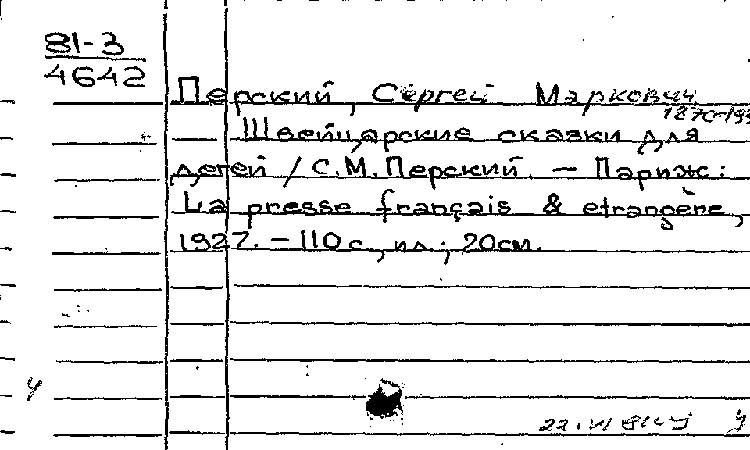 81-3
4642
Перский, Сергей Маркович
1870-193
Швейцарские сказки для
детей / С.М. Перский. — Париж:
La presse français & etrangère,
1927. — 110 с., ил.; 20см.